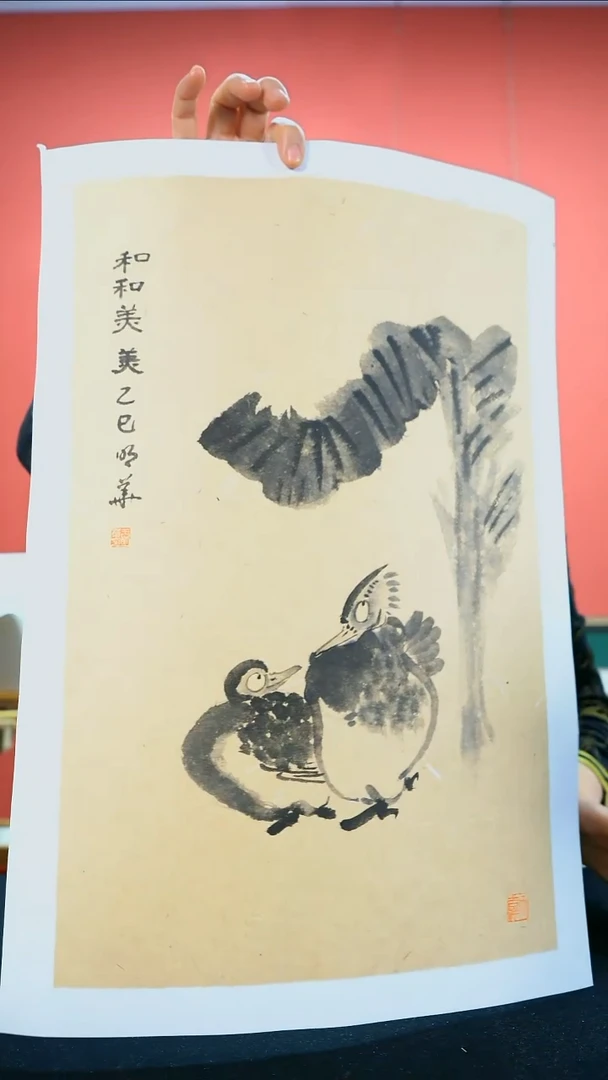 和和美美乙巳明華